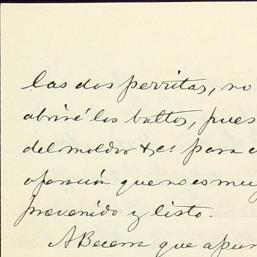 las dos perritas, no
abriré los baltos, pues
del moldor &ct para
operación que no es muy
prevenido y listo.
A Becerra que apun